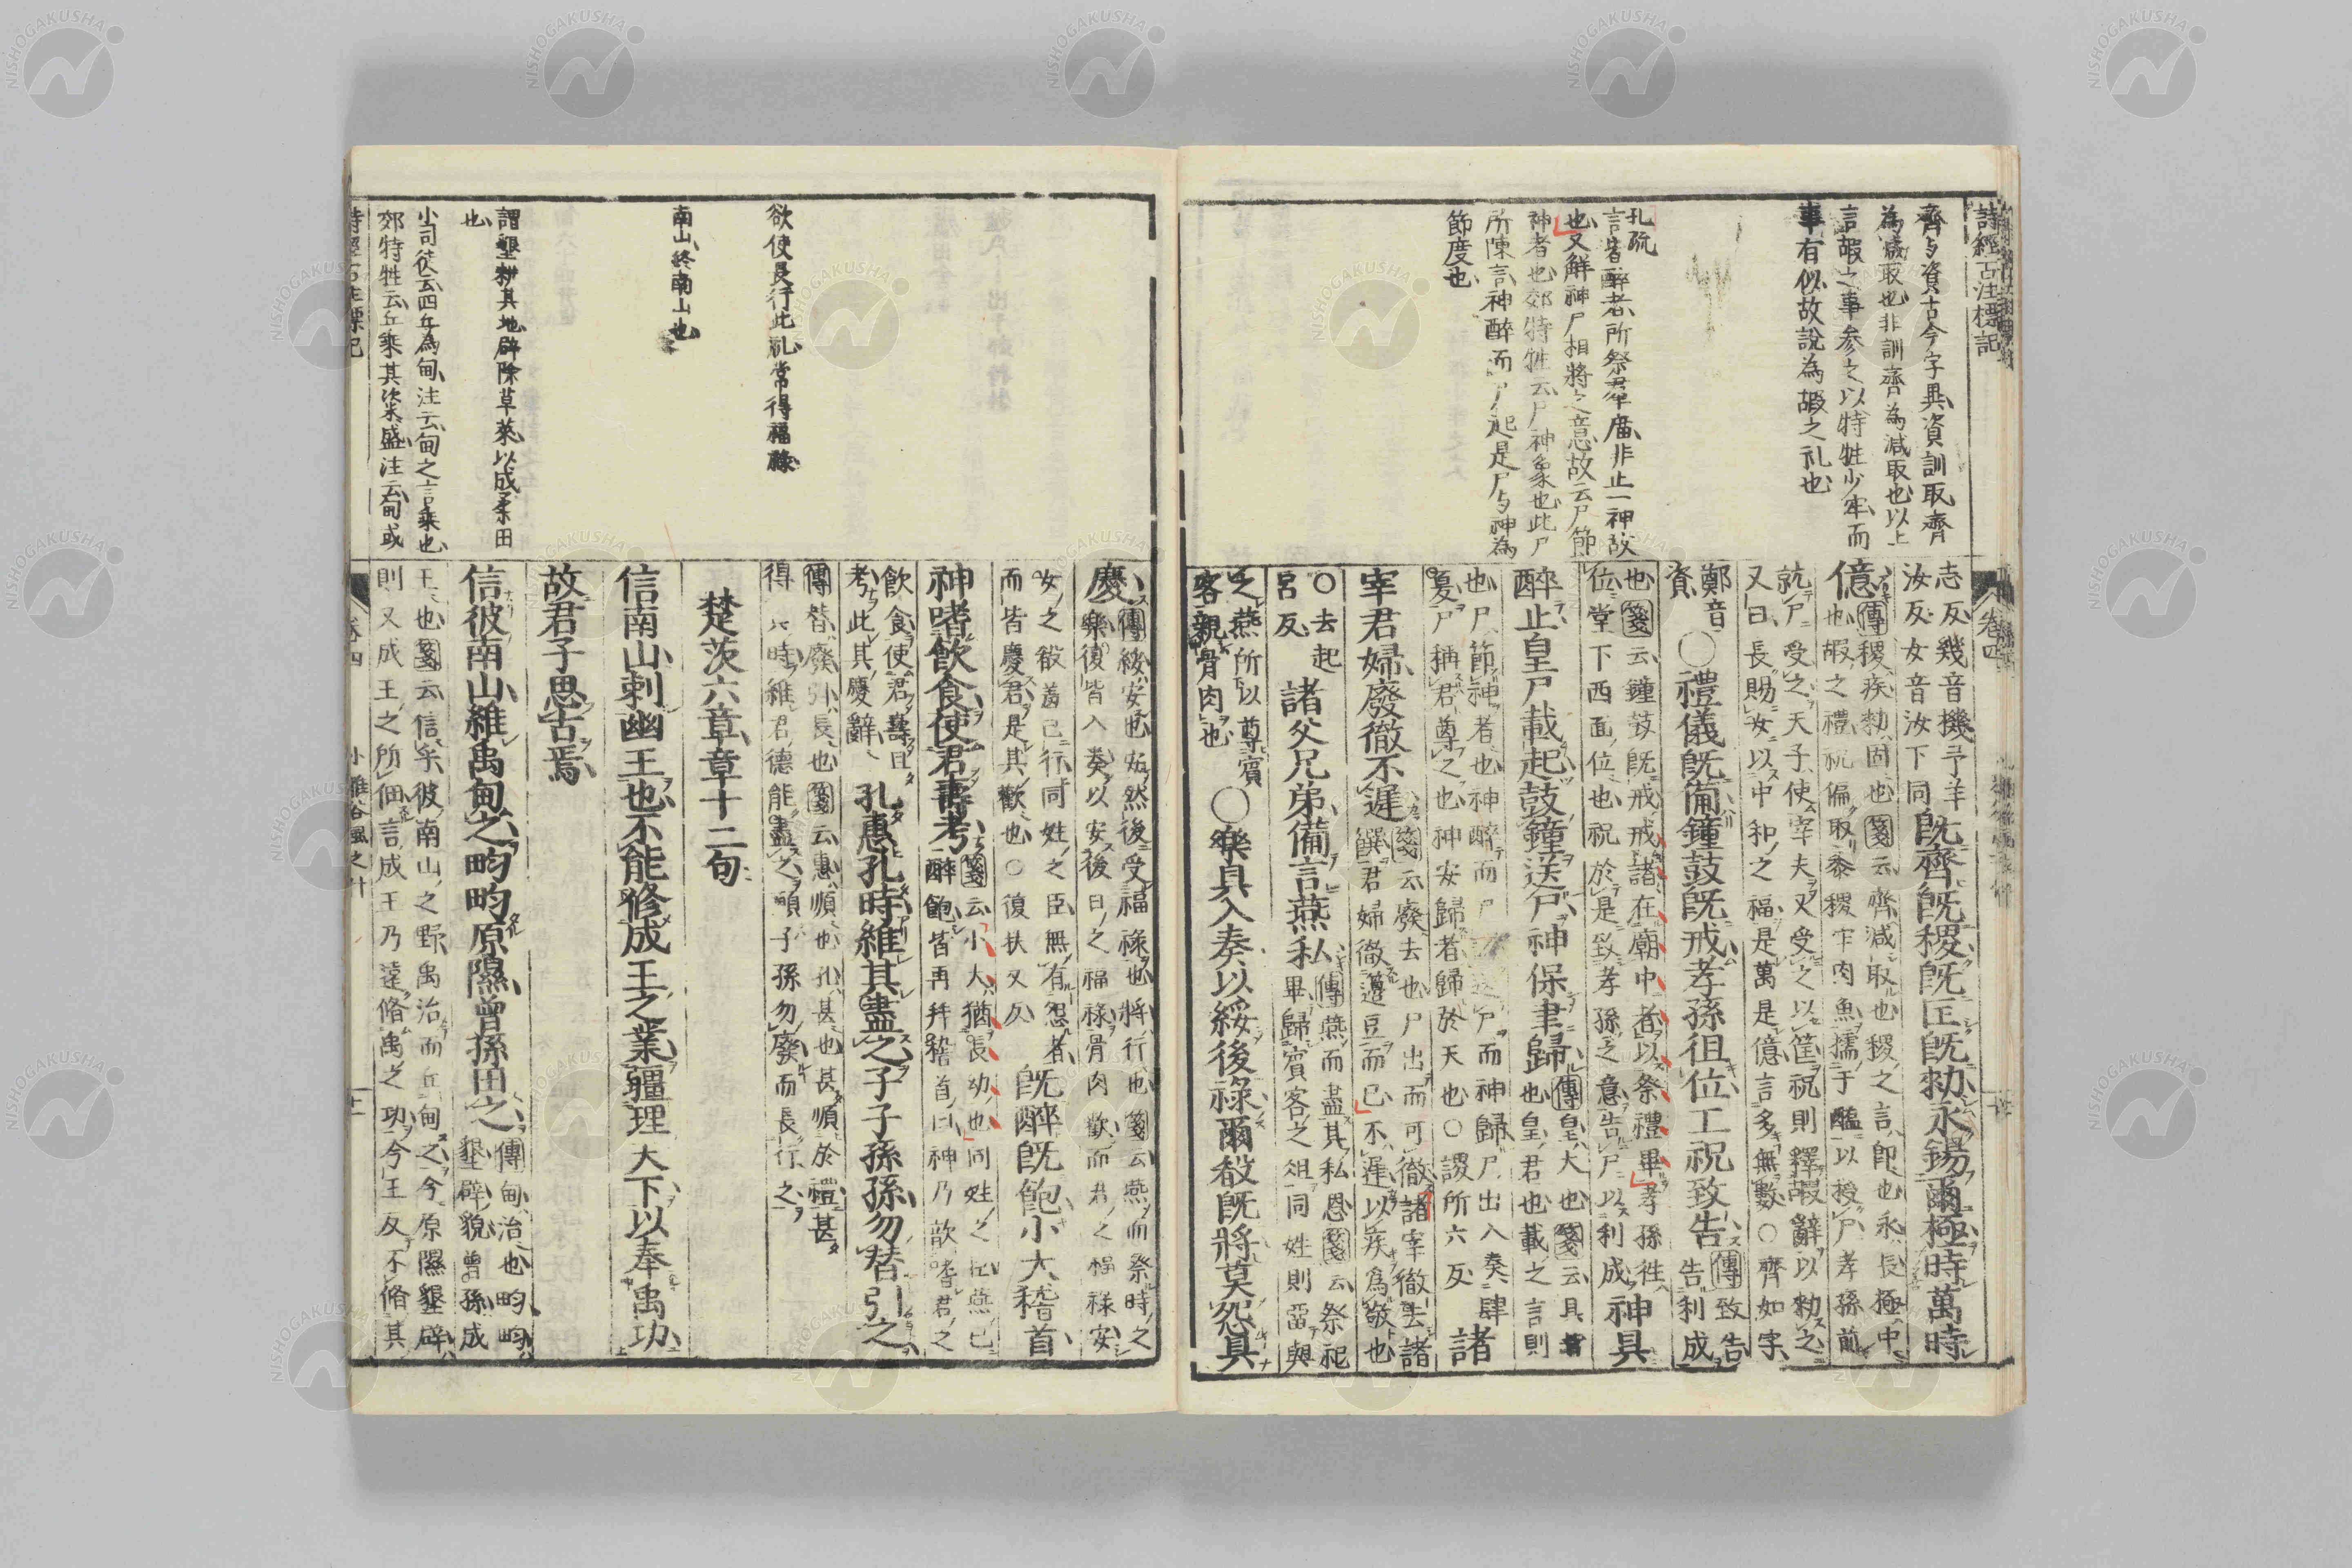 詩經古注標記
齊与資古今字異資訓取齊
為減取也非訓齊為減取也以上
言嘏之事参之以特牲少牢而
事有似故説為嘏之礼也
孔疏
言皆醉者所祭羣庿非止一神故
也又解神尸相將之意故云尸節
神者也郊特牲云尸神象也此尸
所陳言神醉而尸起是尸与神為
節度也
卷四
志反幾音機予羊
汝反女音汝下同
既齊既稷既匡既勑永錫爾極時萬時
億
傳稷疾勑固也箋云齊減取也稷之言即也永長極中
也嘏之禮祝偏取黍稷牢肉魚擩于醢以授尸孝孫前
就尸受之天子使宰夫又受之以筐祝則釋嘏辭以勑之
又曰長賜女以中和之福是萬是億言多無數○齊如字
鄭音
資
○禮儀既備鐘鼓既戒孝孫徂位工祝致告
傳致告
告利成
也箋云鐘鼓既戒戒諸在廟中者以祭禮畢孝孫徃
位堂下西面位也祝於是致孝孫之意告尸以利成
神具
醉止皇尸載起鼓鐘送尸神保聿歸
傳皇大也箋云具皆
也皇君也載之言則
也尸節神者也神醉而尸
尸而神歸尸出入奏肆
夏尸稱君尊之也神安歸者歸於天也○謖所六反
諸
宰君婦廢徹不遲
箋云廢去也尸出而可徹諸宰徹去諸
饌君婦徹籩豆而已不遲以疾爲敬也
○去起
呂反
諸父兄弟備言燕私
傳燕而盡其私恩箋云祭祀
畢歸賓客之俎同姓則畱與
之燕所以尊賓
客親骨肉也
○樂具入奏以綏後祿爾殽既將莫怨具
欲使長行此礼常得福祿
南山終南山也
謂墾耕其地辟除草萊以成柔田
也
小司徒云四丘為甸注云甸之言乗也
郊特牲云丘乗其粢盛注云甸或
慶
傳綏安也安然後受福祿也將行也箋云燕而祭時之
樂復皆入奏以安後日之福祿骨肉歡而君之福祿安
女之殽羞已行同姓之臣無有怨者
而皆慶君是其歡也○復扶又反
既醉既飽小大稽首
神嗜飲食使君壽考
箋云小大猶長幼也同姓之臣燕已
醉飽皆再拝稽首曰神乃歆嗜君之
飲食使君壽且
考此其慶辭
孔惠孔時維其盡之子子孫孫勿替引之
傳替廢引長也箋云惠順也孔甚也甚順於禮甚
得其時維君德能盡之願子孫勿廢而長行之
楚茨六章章十二句
信南山刺幽王也不能修成王之業疆理天下以奉禹功
故君子思古焉
信彼南山維禹甸之畇畇原隰曾孫田之
傳甸治也畇畇
墾辟貌曾孫成
王也箋云信乎彼南山之野禹治而丘甸之今原隰墾辟
則又成王之所佃言成王乃遠脩禹之功今王反不脩其
小雅谷風之什